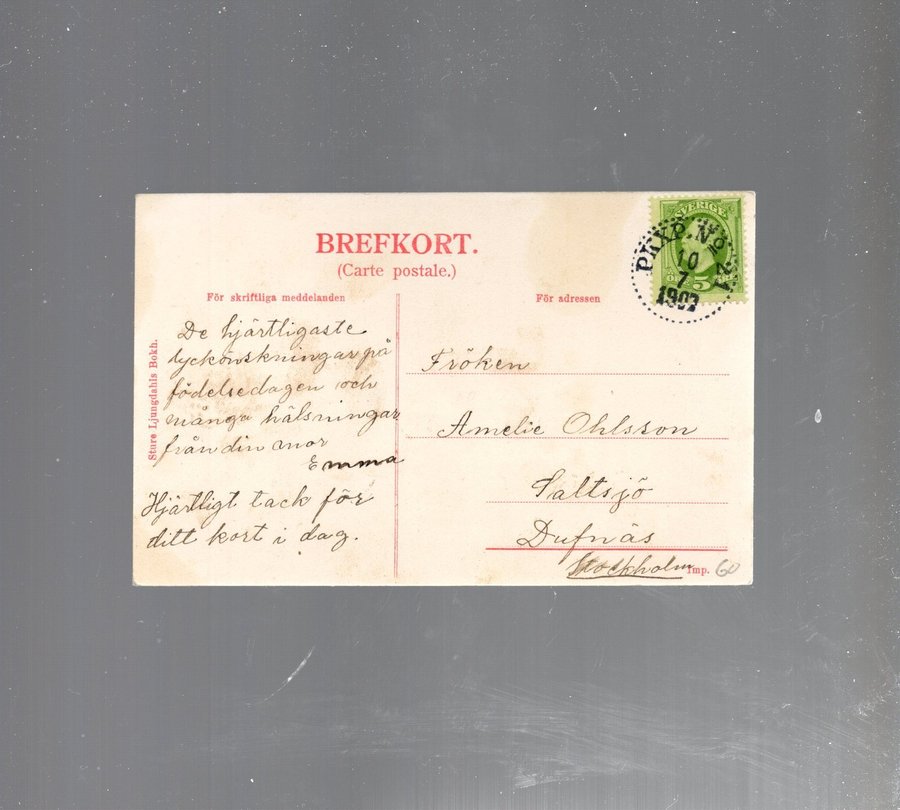 BREFKORT.
(Carte postale.)
För skriftliga meddelanden
För adressen
SVERIGE
5
PKXP. Nº 21
10
7
1907
De hjärtligaste
lyckönskningar på
födelsedagen och
många hälsningar
från din mor
Emma
Hjärtligt tack för
ditt kort i dag.
Fröken
Amelie Ohlsson
Saltsjö
Dufnäs
Stockholm
Imp.
60
Sture Ljungdahls Bokh.